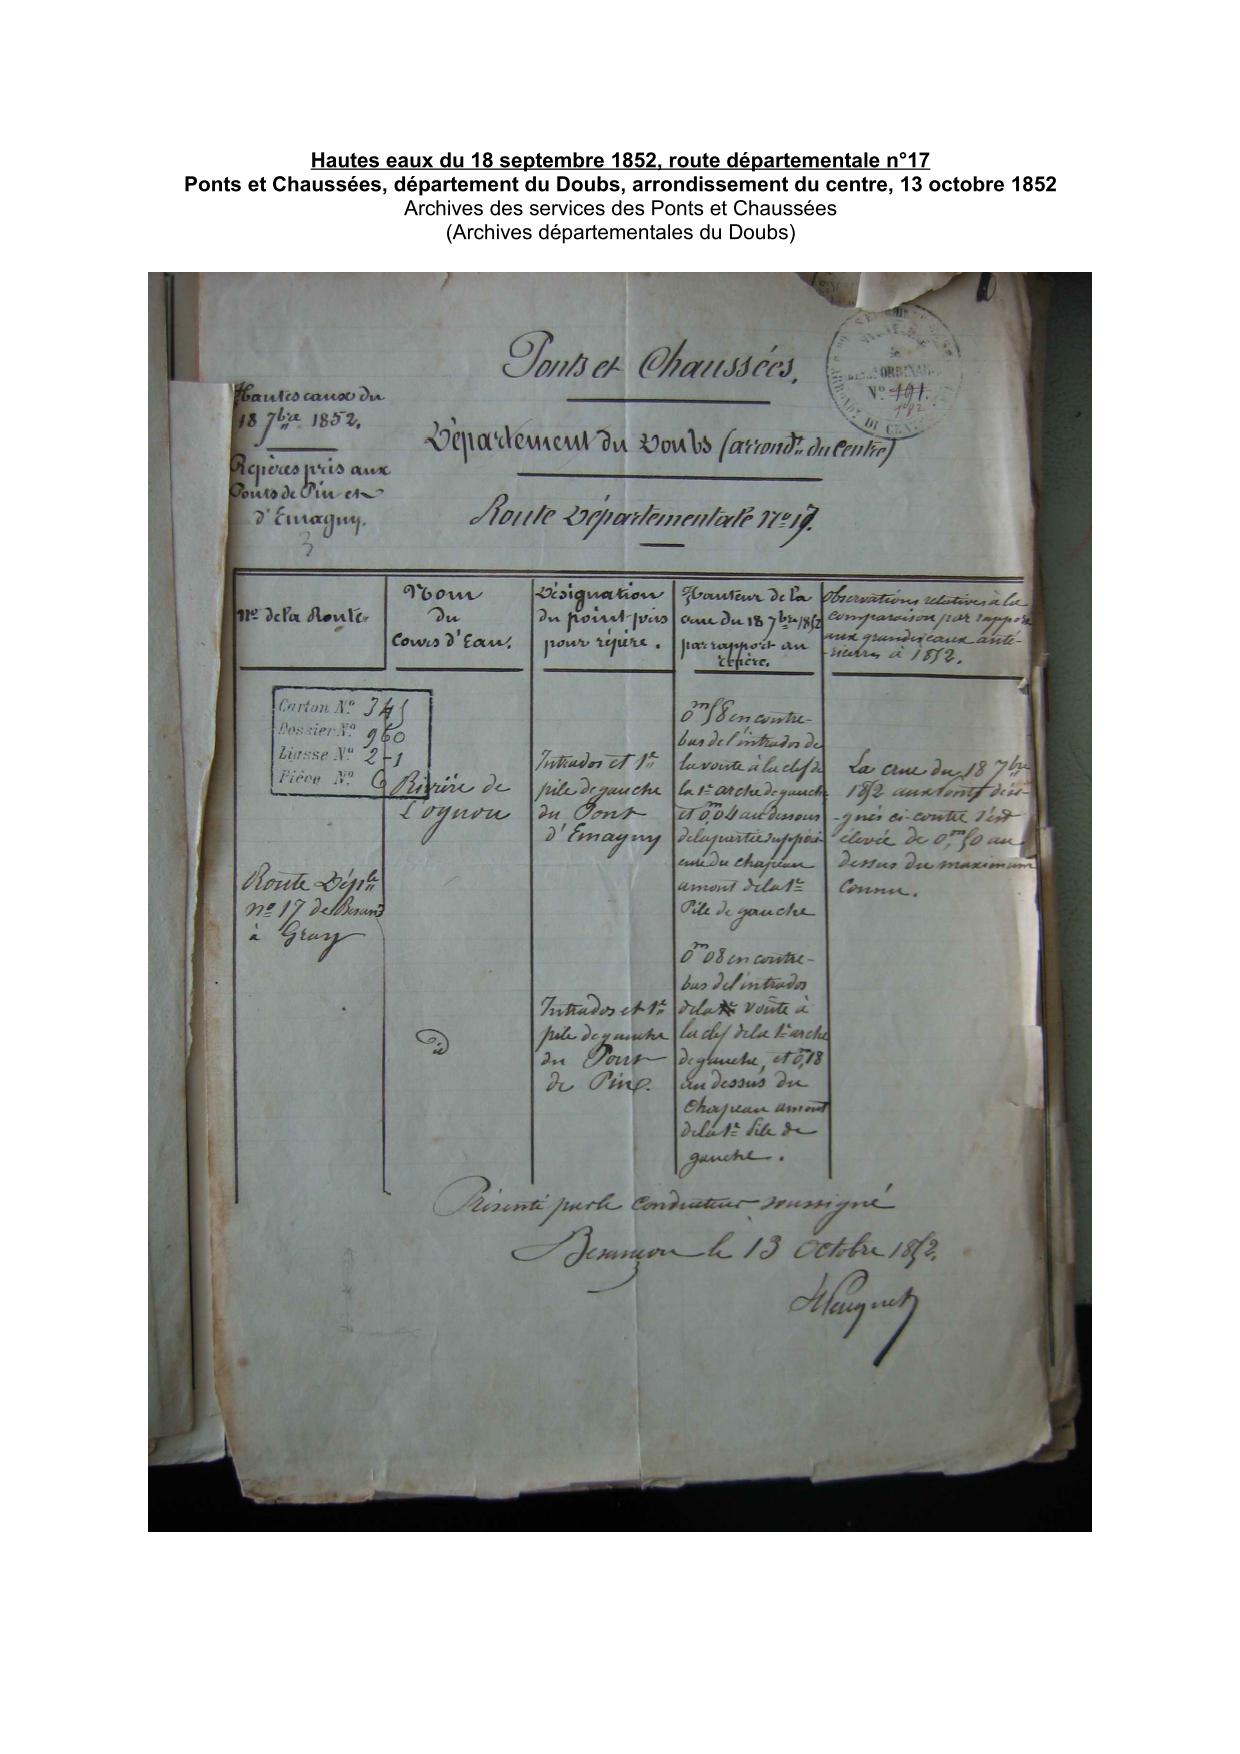 Hautes eaux du 18 septembre 1852, route départementale n°17
Ponts et Chaussées, département du Doubs, arrondissement du centre, 13 octobre 1852
Archives des services des Ponts et Chaussées
(Archives départementales du Doubs)
Ponts et Chaussées.
N° 191.
192
Hautes eaux du
18 7bre 1852.
Repères pris aux
Ponts de Pin et
d'Emagny.
3
Département du Doubs (arrondt du Centre)
Route Départementale No 17.
No de la Route
Nom
du
Cours d'Eau.
Désignation
du point pris
pour répère.
Hauteur de la
crue du 18 7bre 1852
par rapport au
repère.
Observations relatives à la
comparaison par rapport
aux grandes eaux anté-
-rieures à 1852.
Carton No 345
Dossier No 960
Liasse No 2-1
Pièce No 6
Route Déple
no 17 de Besanç
à Gray
Rivière de
l'ognon
Intrados et 1re
pile de gauche
du Pont
d'Emagny
0m58 en contre-
bas de l'intrados de
la voute à la clef de
la 1re arche de gauche
et 0m,04 au dessous
de la partie supéri-
eure du chapeau
amont de la 1re
Pile de gauche
La crue du 18 7bre
1852 aux points dési-
-gnés ci-contre s'est
élevée de 0,m50 au
dessus du maximum
connu.
id
Intrados et 1re
pile de gauche
du Pont
de Pin.
0m08 en contre-
bas de l'intrados
de la voûte à
la clef de la 1re arche
de gauche, et 0m,18
au dessus du
Chapeau amont
de la 1re Pile de
gauche.
Présenté par le Conducteur soussigné
Besançon le 13 octobre 1852.